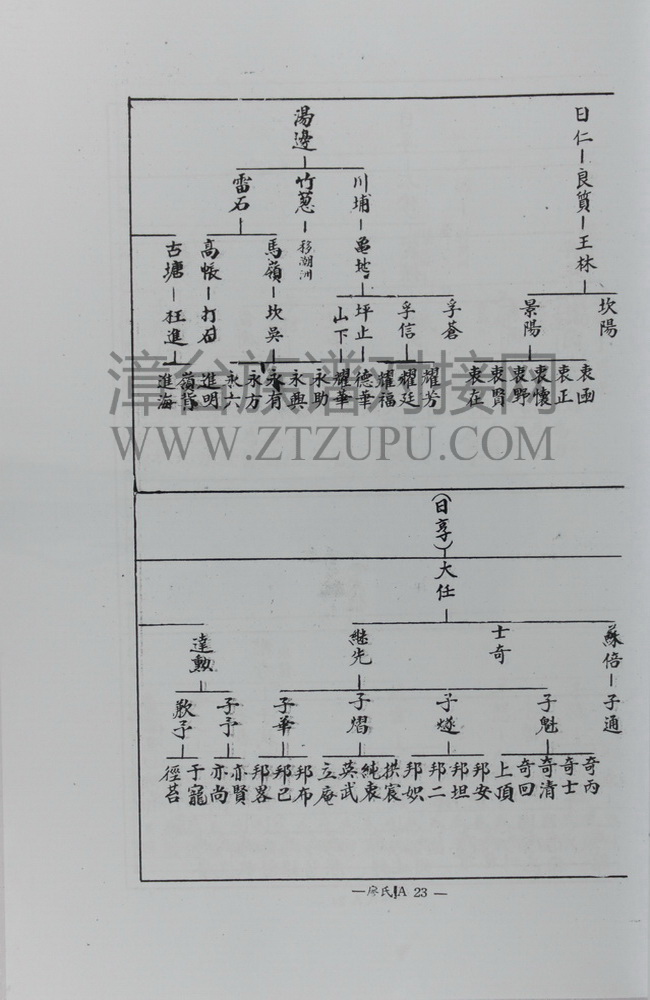 日仁 良質 王林
坎陽 景陽
衷函 衷正 衷懷 衷野 衷賢 衷在
湯邊
川埔 竹蔥 雷石
移潮洲
孚蒼 孚信 坪止 山下
耀芳 耀廷 耀福 德華 耀華
馬嶺 坎吳
永助 永興 永有 永方 永六
高帳 打石
古塘 狂進
進明 嶺背 進海
漳台族谱对接网
WWW.ZTZUPU.COM
(日享)
大任
蘇倍 子通
士奇 繼先 達勳
子魁 子燧 子熠 子華 子予 歎予
奇丙 奇士 奇清 奇回 上頂
邦安 邦坦 邦二 邦娰
拱宸 純衷 英武 立庵
邦布 邦已 邦畧
亦賢 亦尚
于寵 徑苔
—廖氏A 23—